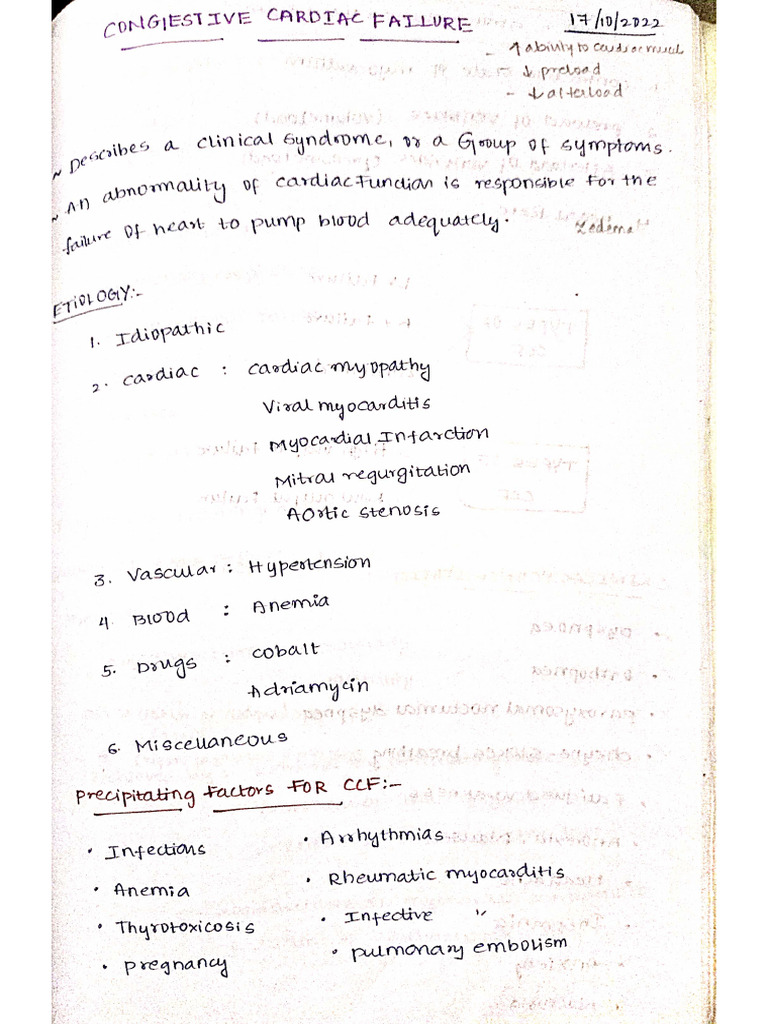 CONGESTIVE CARDIAC FAILURE 17/10/2022
- ↑ ability to cardiac muscl
- ↓ preload
- ↓ afterload
~ Describes a clinical syndrome, or a Group of symptoms.
~ An abnormality of cardiac Function is responsible for the
failure of heart to pump blood adequately.
ETIOLOGY:-
1. Idiopathic
2. cardiac : cardiac myopathy
Viral myocarditis
Myocardial Infarction
Mitral regurgitation
AOrtic stenosis
3. Vascular : Hypertension
4. Blood : Anemia
5. Drugs : cobalt
Adriamycin
6. Miscellaneous
Precipitating Factors FOR CCF:-
• Infections • Arrhythmias
• Anemia • Rheumatic myocarditis
• Thyrotoxicosis • Infective "
• pregnancy • pulmonary embolism